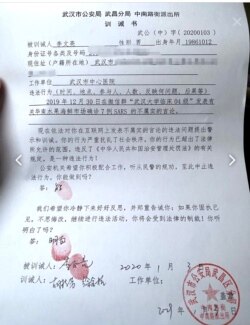 武汉市公安局 武昌分局 中南路街派出所
训 诫 书
武公(中)字(20200103)
被训诫人 李文亮 性别 男 出身年月 19861012
身份证件种类及号码
现住址(户籍所在地) 武汉市
工作单位 武汉市中心医院
违法行为(时间、地点、参与人、人数、反映何问题、后果等)
2019年12月30日在微信群"武汉大学临床04级"发表有
关华南水果海鲜市场确诊7例SARS的不属实的言论。
现在依法对你在互联网上发表不属实的言论的违法问题提出警
示和训诫。你的行为严重扰乱了社会秩序。你的行为已超出了法律
所允许的范围,违反了《中华人民共和国治安管理处罚法》的有关
规定,是一种违法行为!
公安机关希望你积极配合工作,听从民警的规劝,至此中止违
法行为。你能做到吗?
答: 能
我们希望你冷静下来好好反思,并郑重告诫你:如果你固执己
见,不思悔改,继续进行违法活动,你将会受到法律的制裁!你听
明白了吗?
答: 明白
被训诫人: 李文亮 2020年1月3
训诫人: